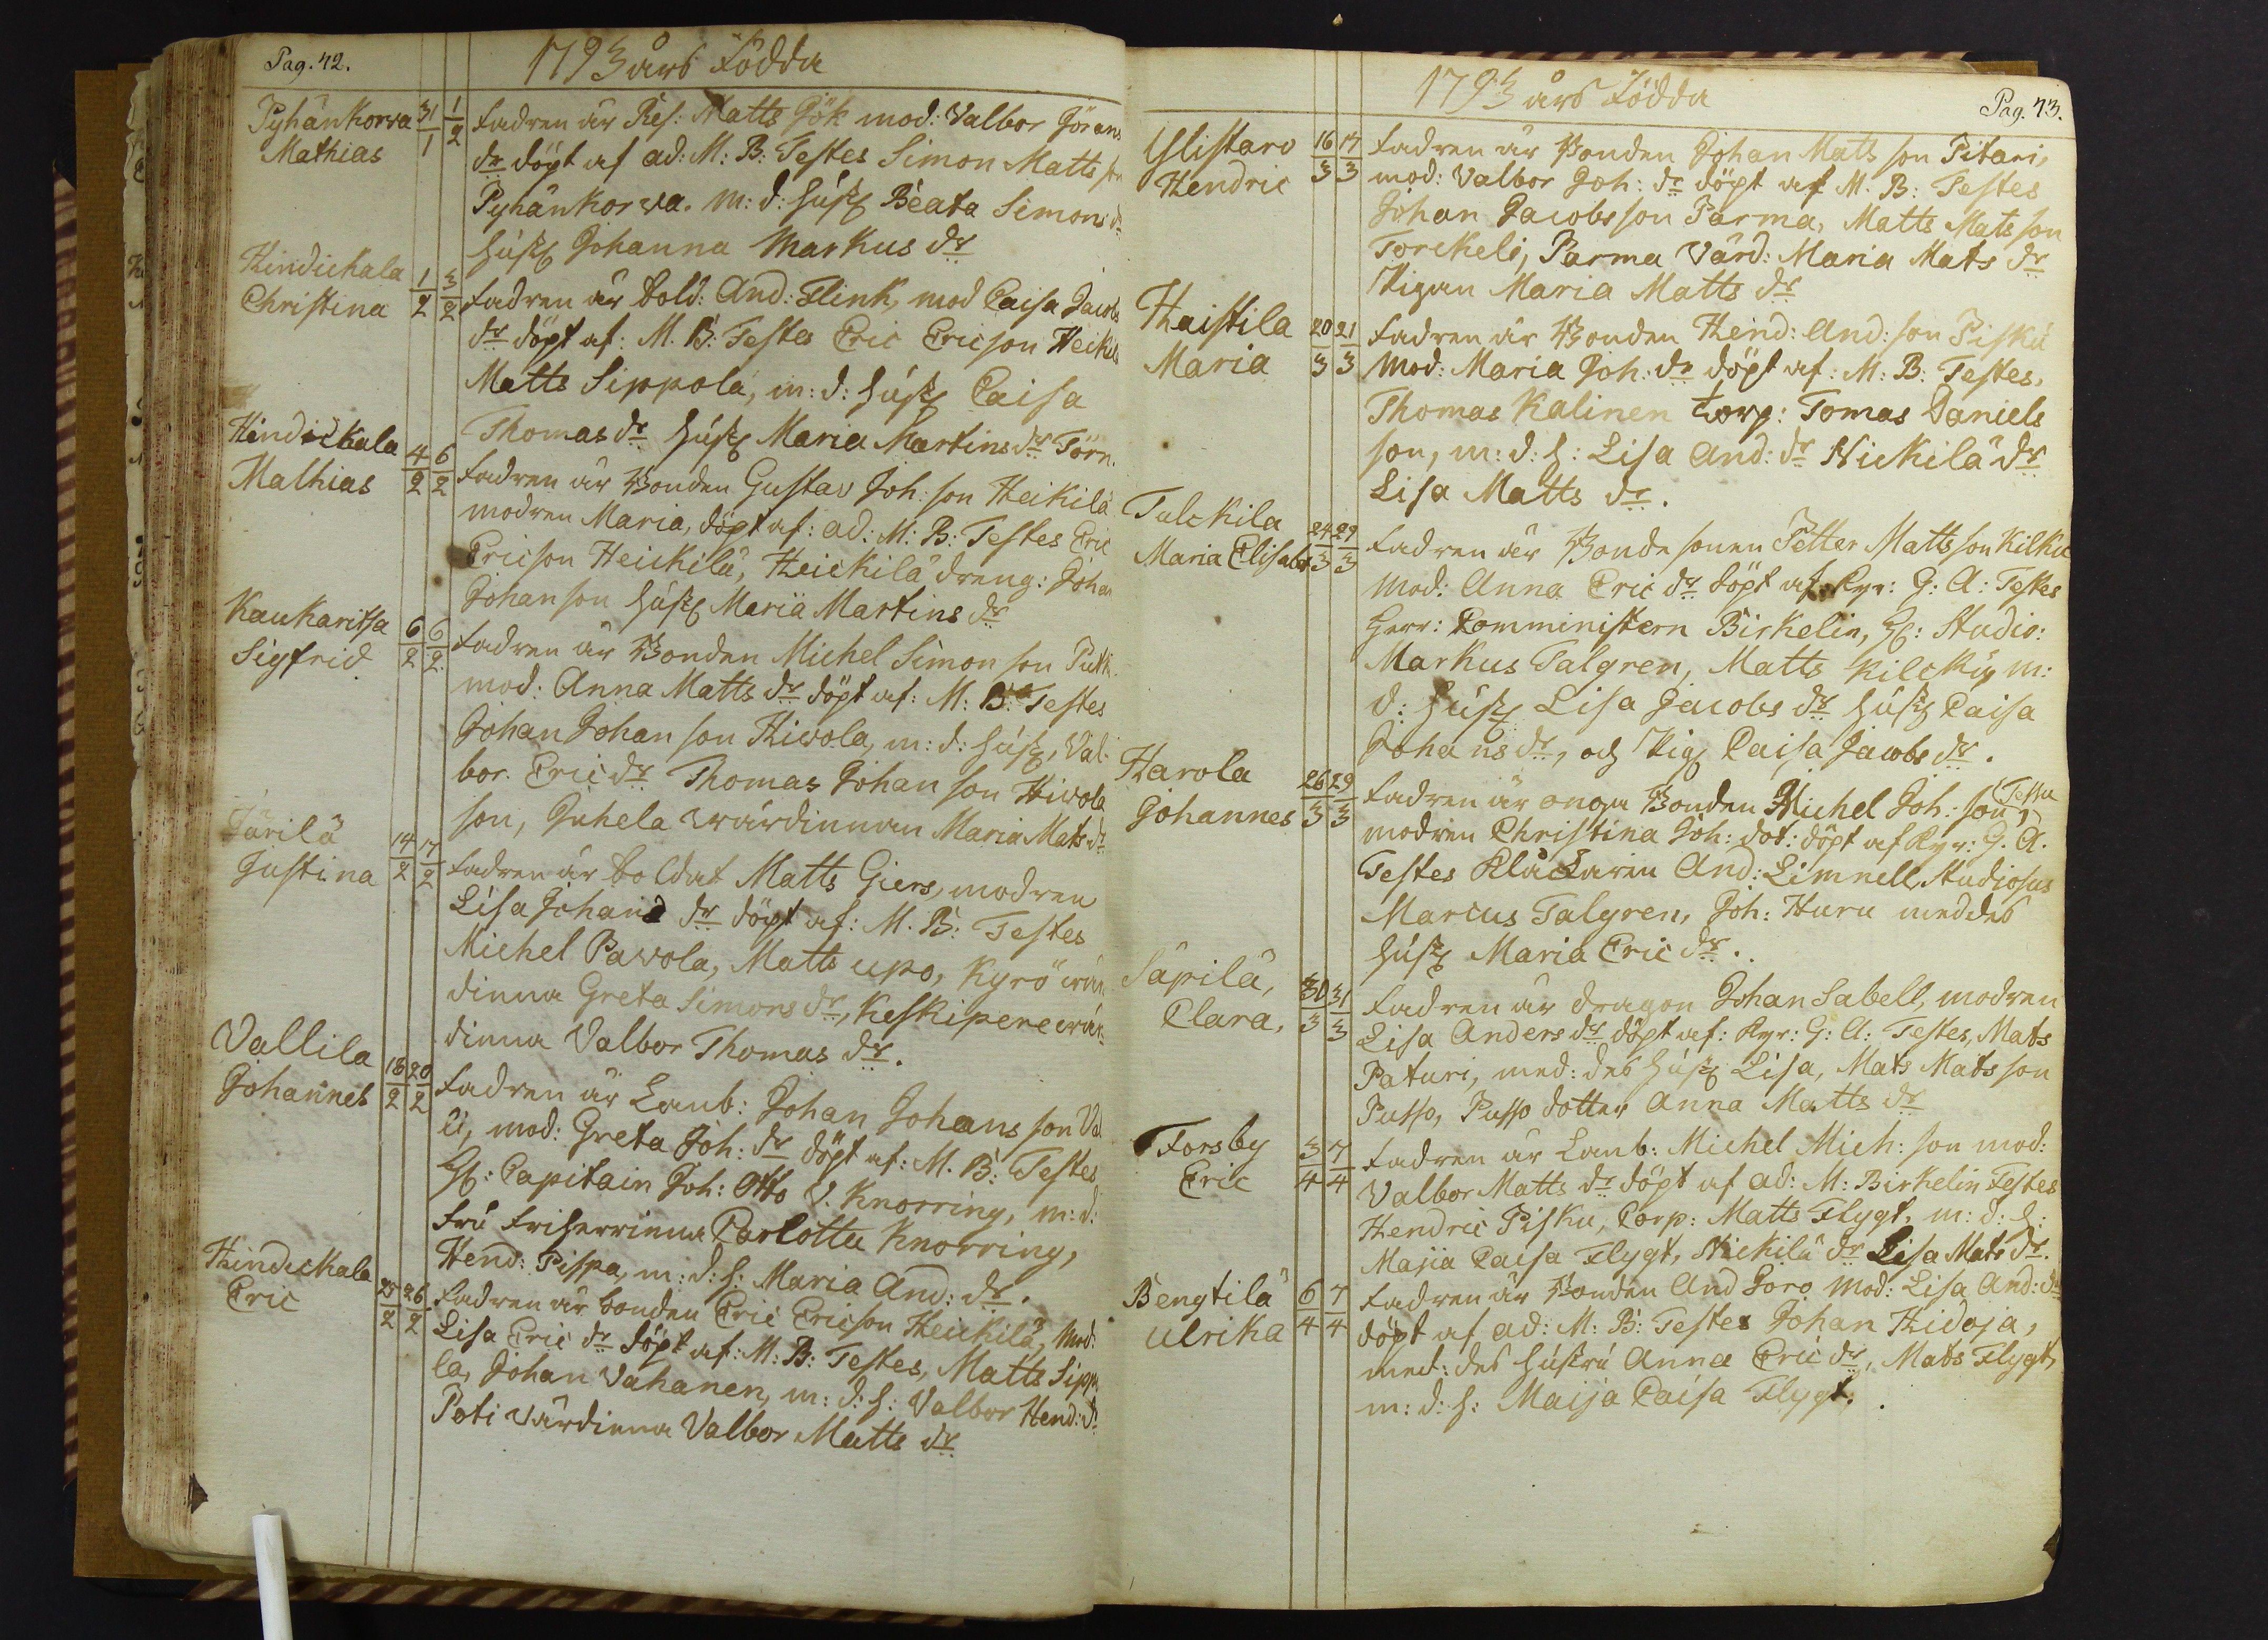 Pag. 42.
1793 års Födda
Pyhänkorva 31/1 1/2 Fadren är Res: Matts Gök mod: Valbor Jörans
Mathias dr döpt af ad: M: B: Testes Simon Matts son
Pyhänkorva. m: d: hust Beata Simons dr
hust Johanna Markus dr
Hindickala 1/2 3/2 Fadren är Sold: And: Flink, mod Caisa Jacobs
Christina dr döpt af: M. B: Testes Eric Ericson Heikilä
Matts Sippola, m: d: hust Caisa
Thomas dr hust Maria Martins dr Törn.
Hindickala 4/2 6/2 Fadren är Bonden Gustav Joh: son Heikilä
Mathias modren Maria, döpt af: ad: M: B: Testes Eric
Ericson Heickilä, Heickilä dreng: Johan
Johanson hust Maria Martins dr
Kaukaritsa 6/2 6/2 Fadren är Bonden Michel Simon son
Sigfrid mod: Anna Matts dr döpt af: M: B: Testes
Johan Johan son Hivola, m: d: hust, Val-
bor. Eric dr Thomas Johan son Hivola
son, Juhela wärdinnan Maria Mats dr
Järilä 14/2 17/2 Fadren är Soldat Matts Giers, modren
Justina Lisa Johans dr döpt af: M. B: Testes
Michel Pavola, Matts upo, Kyrö wär
dinna Greta Simons dr, Keskipere wär
dinna Valbor Thomas dr.
Vallila 18/2 20/2 Fadren är Lanb: Johan Johans son Va
Johannes li, mod: Greta Joh: dr döpt af: M. B: Testes
H: Capitain Joh: Otto V. Knorring, m: d:
Fru Friherrinna Carlotta Knorring,
Hend: Pispa, m: d: h: Maria And: dr.
Hindickala 25/2 26/2 Fadren är bonden Eric Ericson Heickilä, Mod:
Eric Lisa Eric dr döpt af: M: B: Testes, Matts Sippo
la, Johan Vahanen, m: d: h: Valbor Hend: dr
Poti Värdinna Valbor Matts dr
1793 års Födda
Pag. 43.
Ylistaro 16/3 17/3 Fadren är Bonden Johan Mats son Pitari,
Hendric mod: Valbor Joh: dr döpt af M. B: Testes
Johan Jacobsson Parma, Matts Mats son
Torckeli, Parma Värd: Maria Mats dr
Pigan Maria Matts dr
Haistila 20/3 21/3 Fadren är Bonden Hend: And: son Piskù
Maria Mod: Maria Joh: dr döpt af: M: B: Testes,
Thomas Kalinen torp: Tomas Daniels
son, m: d: h: Lisa And: dr Nickilä dr
Lisa Matts dr.
Tulckila 24/3 29/3 Fadren är Bonde sonen Petter Matts son Kilku
Maria Elisabet Mod: Anna Eric dr döpt af Kyr: G: A: Testes
Herr: Comministern Birkelin, H: Studio:
Markus Talgren, Matts Kilcku, m:
d: hust Lisa Jacobs dr hust Caisa
Johans dr, och Pig Caisa Jacobs dr.
Harola 26/3 29/3 Fadren är unga Bonden Michel Joh: son, Tessu
Johannes modren Christina Joh: dot: döpt af Kyr: G. A.
Testes Klåckaren And: Limnell, Studiosus
Marcus Talgren, Joh: Huru med des
hust Maria Eric dr.
Säpilä, 30/3 31/3 Fadren är dragon Johan Sabell, modren
Clara, Lisa Anders dr döpt af: Kyr: G: A: Testes, Mats
Paturi, med: des hust Lisa, Mats Mats son
Pusso, Pusso dotter Anna Matts dr
Forsby 3/4 7/4 Fadren är Lanb: Michel Mich: son mod:
Eric Valbor Matts dr döpt af ad: M: Birkelin Testes
Hendric Pisku, Corp: Matts Flygt, m: d: h:
Maija Caisa Flygt, Nickilä dr Lisa Mats dr.
Bengtilä 6/4 7/4 Fadren är Bonden And Soro Mod: Lisa And: dr
Ulrika döpt af ad: M: B: Testes Johan Hidoja,
med: des hustru Anna Eric dr, Mats Flygt,
m: d: h: Maija Caisa Flygt.